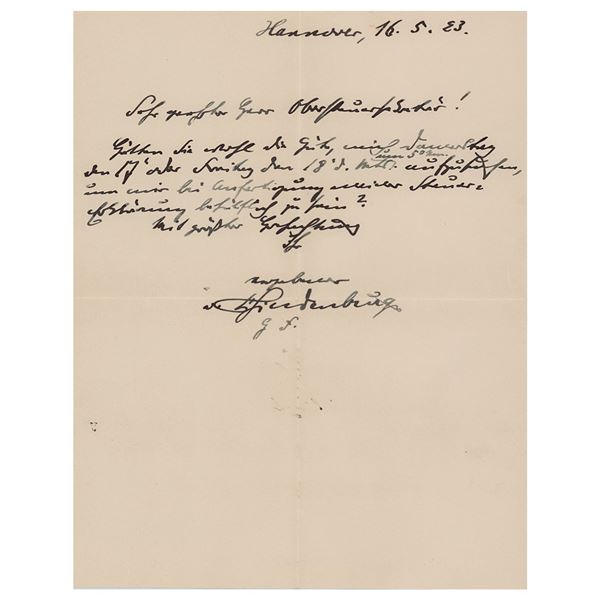 Hannover, 16. 5. 23.
Sehr geehrter Herr Obersteuersekretär!
Hätten Sie wohl die Güte, mich Donnerstag
um 5° Nm.
den 17' oder Freitag den 18' d. Mts. aufzusuchen,
um mir bei Anfertigung meiner Steuer=
Erklärung behülflich zu sein?
Mit größter Hochachtung
Ihr
ergebener
v. Hindenburg
G F.